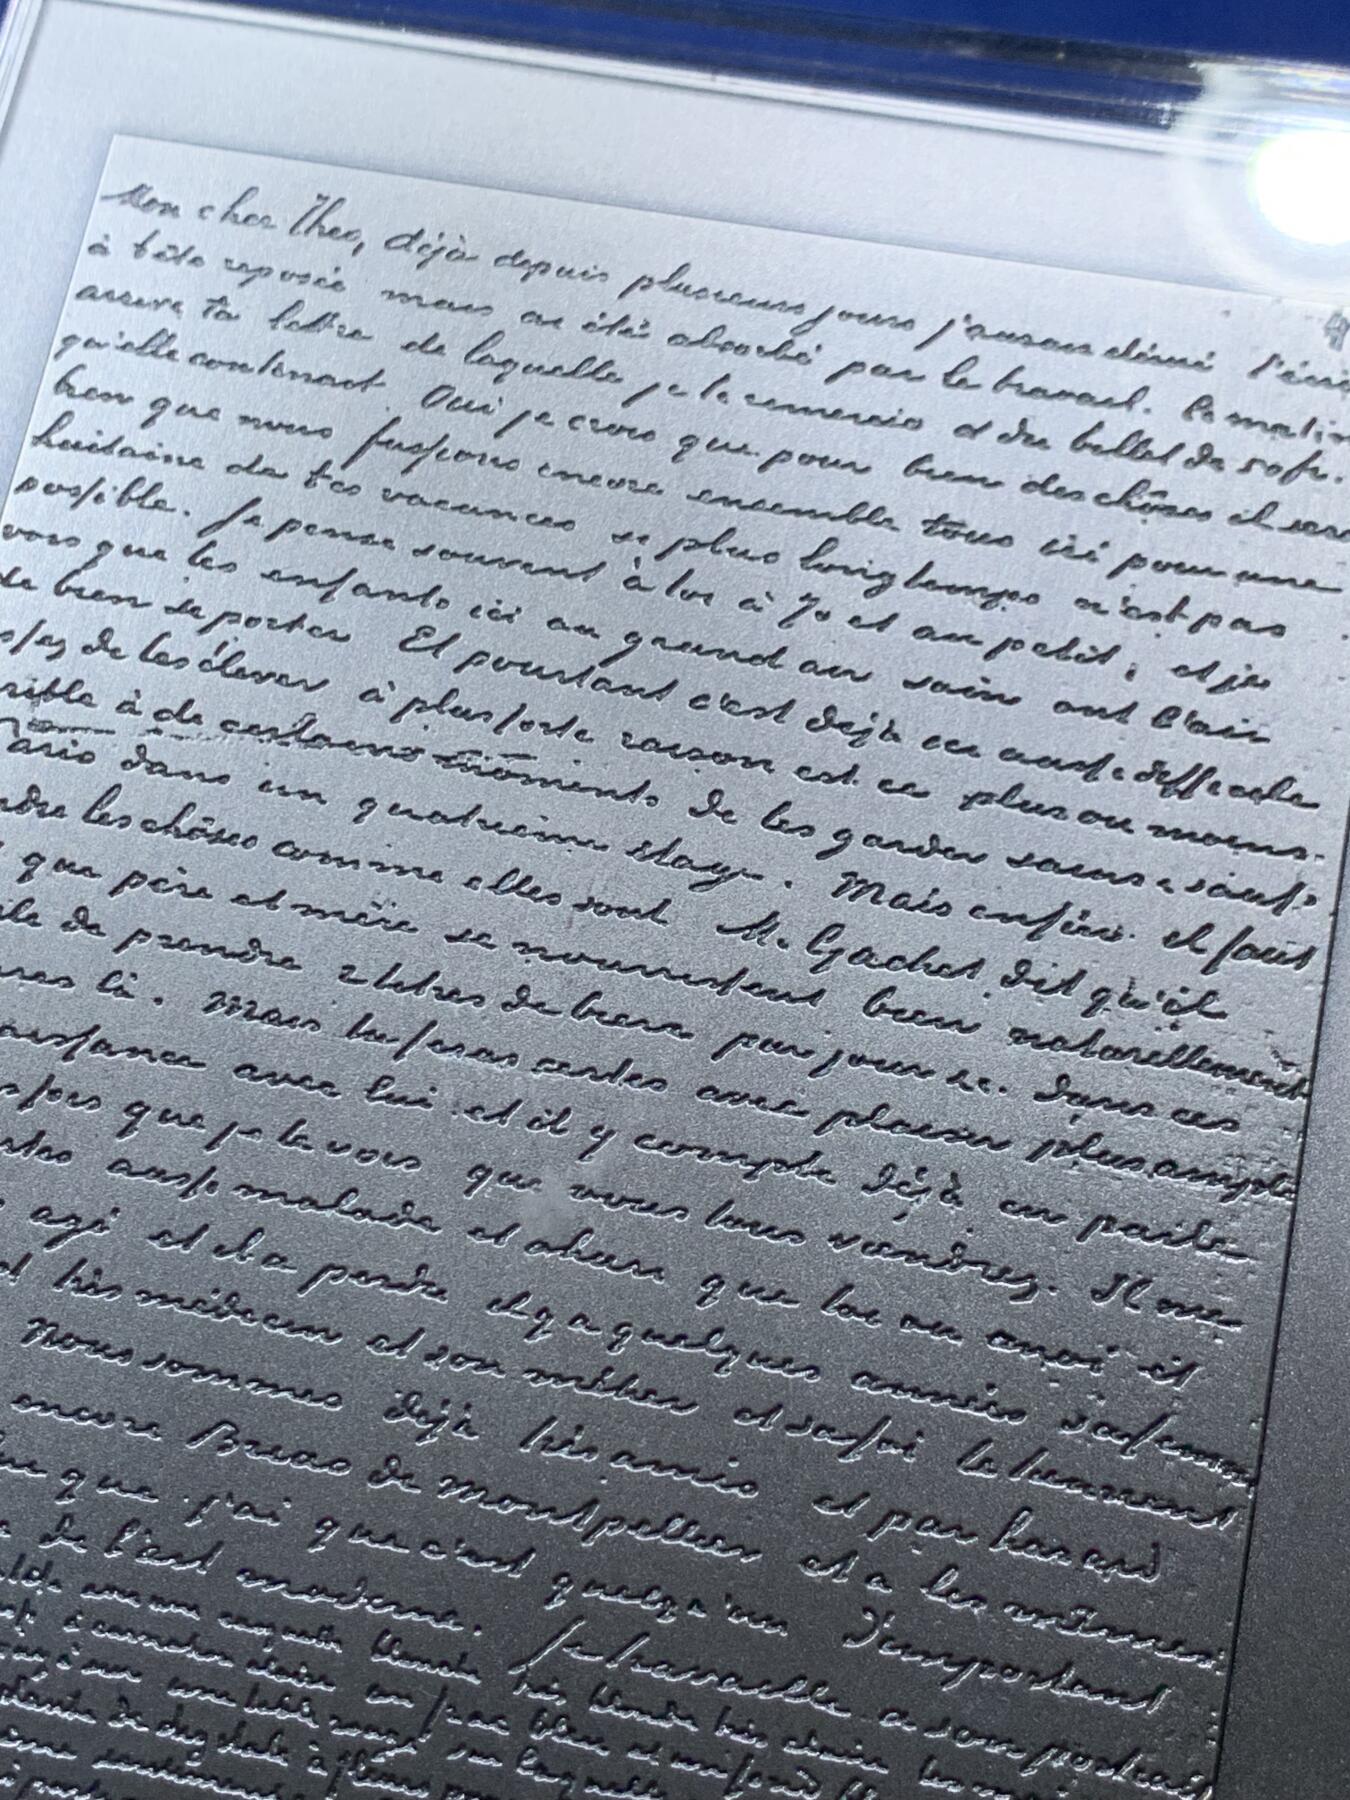 Mon cher Theo, déjà depuis plusieurs jours j'aurais désiré t'écrire
à tête reposée mais ai été absorbé par le travail. Ce matin
arrive ta lettre de laquelle je te remercie et du billet de 50 fr.
qu'elle contenait. Oui je crois que pour bien des chôses il sera
bien que nous fussions encore ensemble tous ici pour une
huitaine de tes vacances si plus longtemps n'est pas
possible. Je pense souvent à toi à Jo et au petit, et je
vois que les enfants ici au grand air sain ont l'air
de bien se porter Et pourtant c'est déjà ici aussi difficile
assez de les élever à plus forte raison est ce plus ou moins
terrible à de certains moments de les garder sains & saufs à
Paris dans un quatrieme étage. Mais enfin il faut
prendre les chôses comme elles sont M. Gachet dit qu'il
que père et mère se nourrissent bien naturellement
parle de prendre 2 litres de biere par jour &c. dans ces
mesures là. Mais tu feras certes avec plaisir plus ample
connaissance avec lui et il y compte déjà en parle
fois que je le vois que vous tous viendrez. Il me
certes aussi malade et ahuri que toi ou moi et il
agé et il a perdu il y a quelques années sa femme
et très médecin et son métier et sa foi le tiennent
Nous sommes déjà très amis et par hasard
encore Bruas de Montpellier et a les mêmes
que j'ai que c'est quelqu'un d'important
de l'art moderne. Je travaille a son portrait